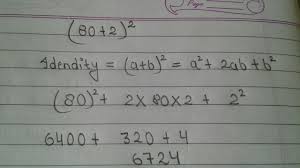 Page
(80+2)²
Idendity = (a+b)² = a² + 2ab + b²
(80)² + 2×80×2 + 2²
6400 + 320 + 4
6724